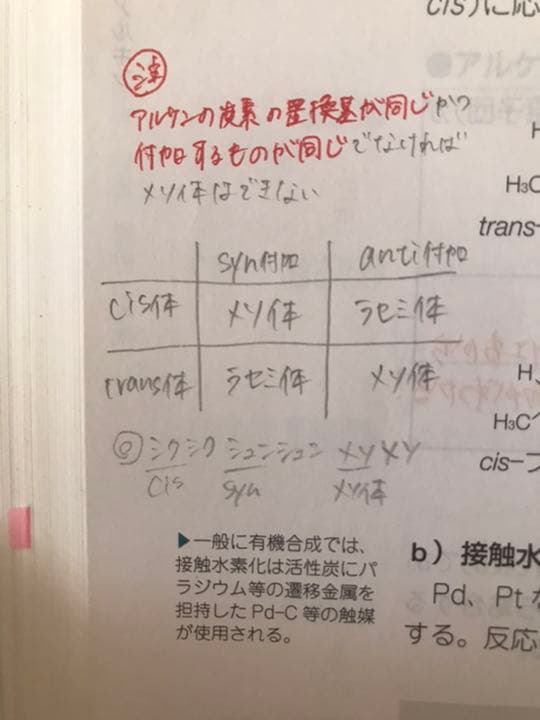 cis)に応
●アルケ
注
アルケンの炭素の置換基が同じか?
付加するものが同じでなければ
メソ体はできない
H
H₃C
trans-
syn付加 anti付加
cis体 メソ体 ラセミ体
trans体 ラセミ体 メソ体
H、
H₃C
cis-ブ
シクシク シュンシュン メソメソ
cis syn メソ体
▶一般に有機合成では、
接触水素化は活性炭にパ
ラジウム等の遷移金属を
担持したPd-C等の触媒
が使用される。
b)接触水
Pd、Ptな
する。反応